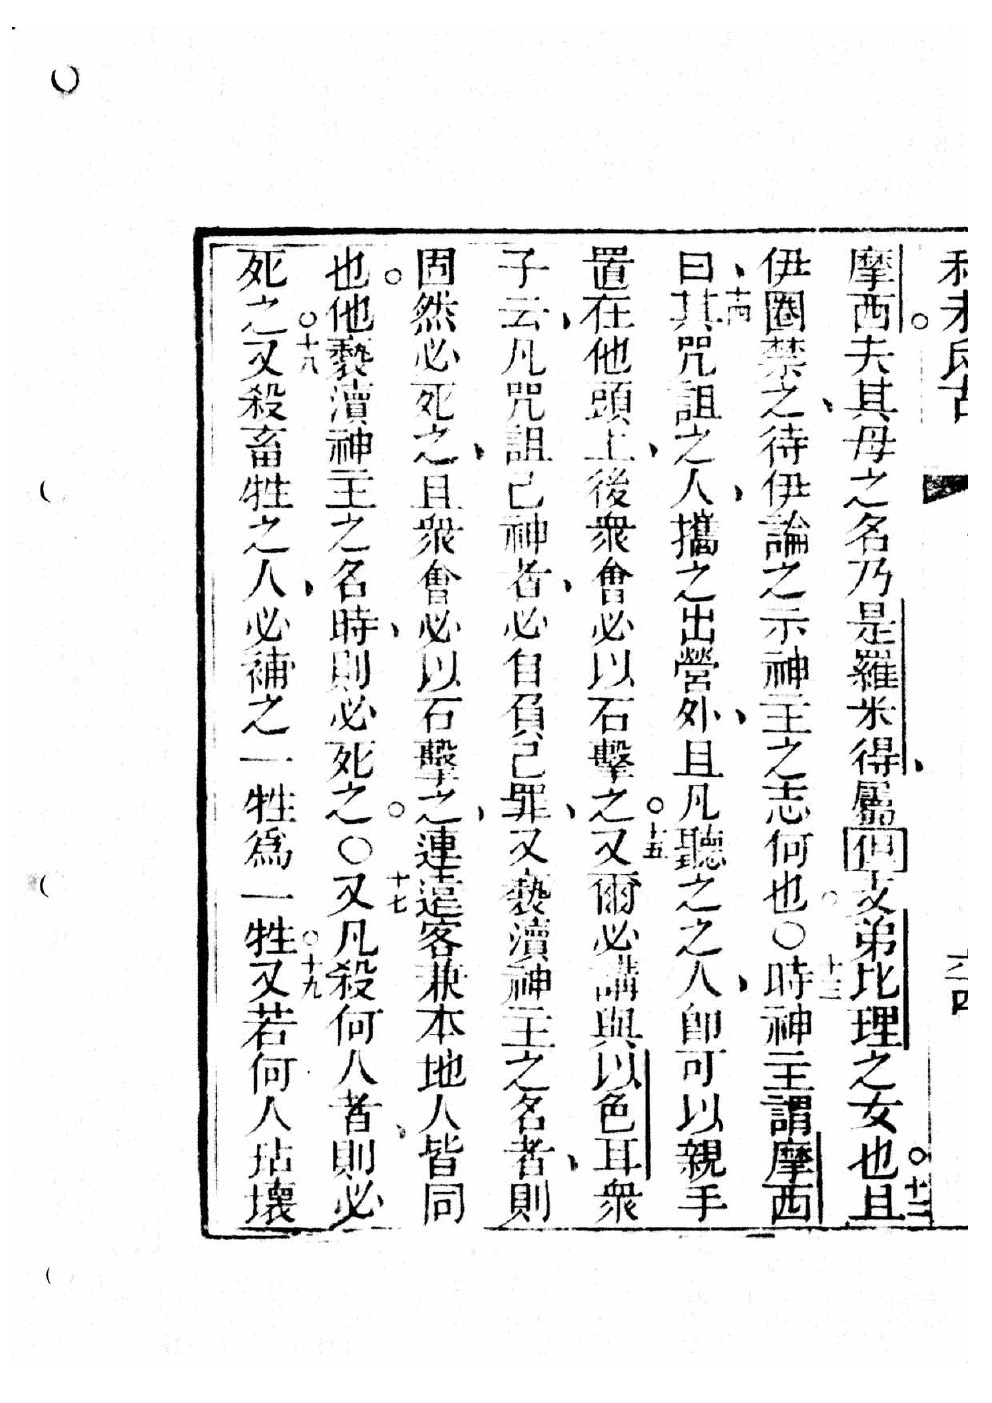 摩西。夫其母之名乃是羅米得、屬但支弟比理之女也。十二且
伊圈禁之、待伊論之示神主之志何也。〇十三時神主謂摩西
曰、十四其咒詛之人、攜之出營外、且凡聽之之人、即可以親手
置在他頭上、後衆會必以石擊之。十五又爾必講與以色耳衆
子云、凡咒詛己神者、必自負己罪、又褻瀆神主之名者、則
固然必死之、且衆會必以石擊之、連遠客兼本地人皆同
也。他褻瀆神主之名時、則必死之。〇十七又凡殺何人者、則必
死之。十八又殺畜牲之人、必補之一牲爲一牲。十九又若何人玷壞